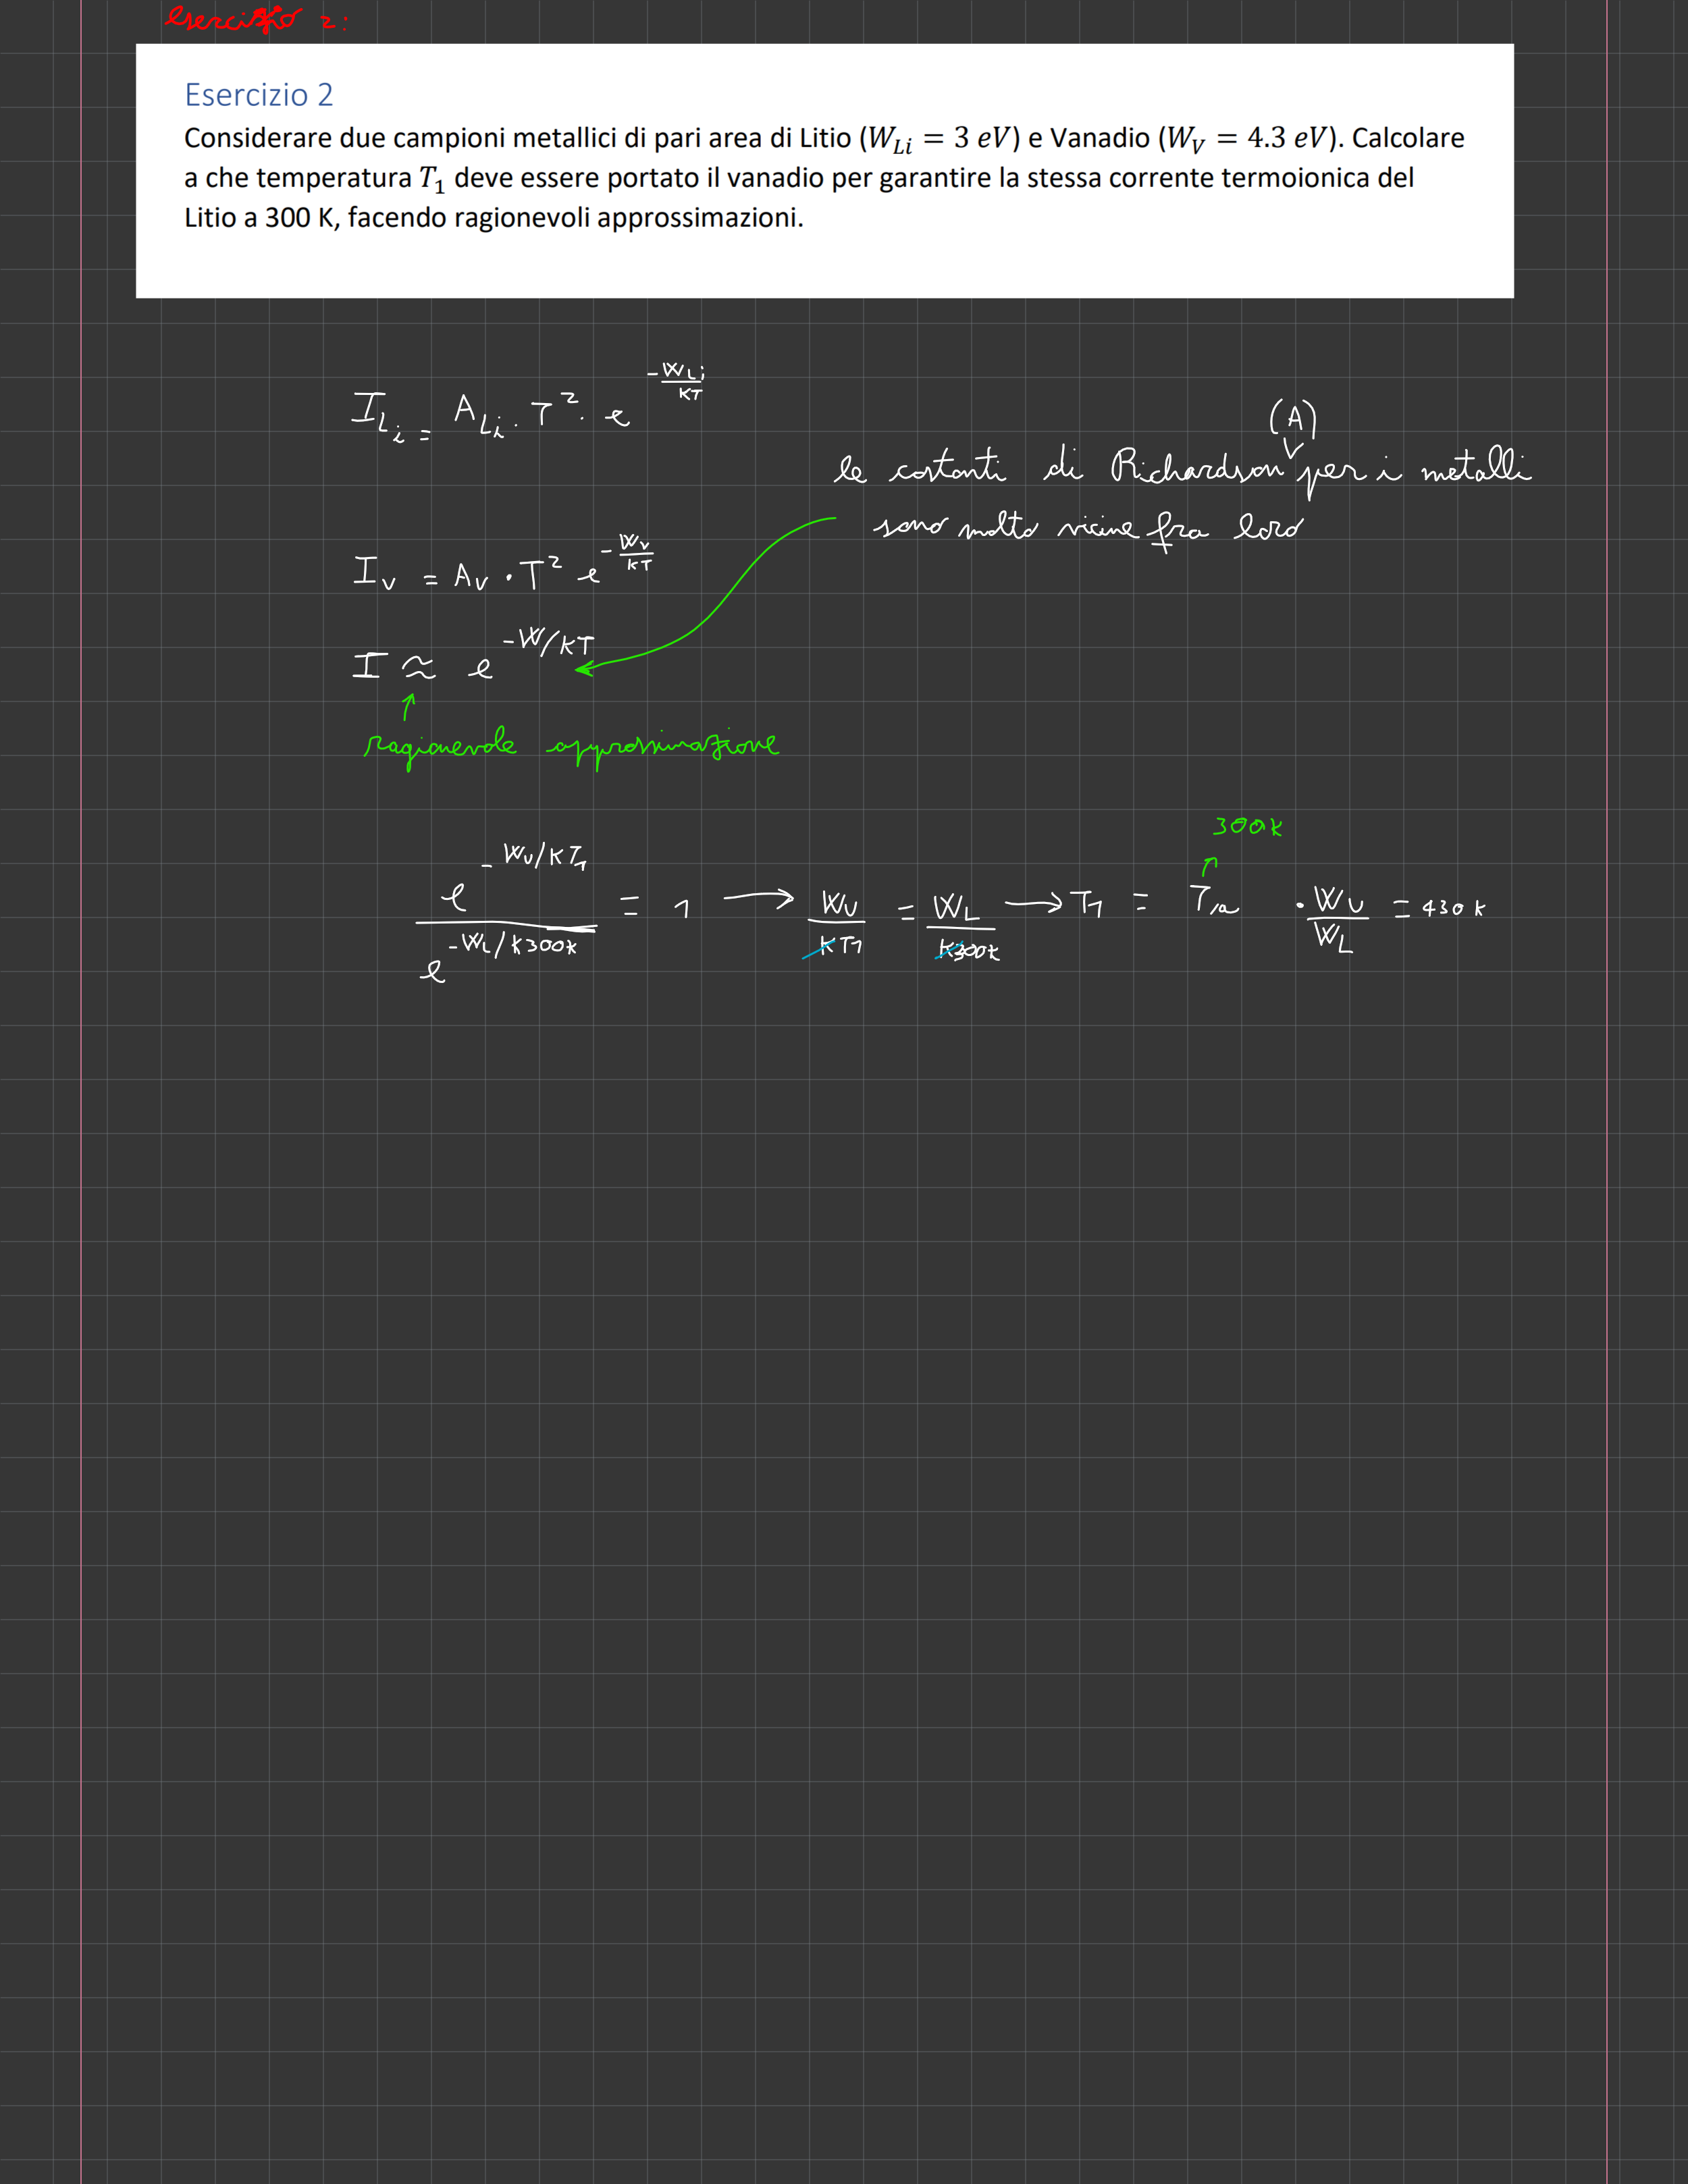 esercizio 2:
Esercizio 2
Considerare due campioni metallici di pari area di Litio (W_Li = 3 eV) e Vanadio (W_V = 4.3 eV). Calcolare
a che temperatura T_1 deve essere portato il vanadio per garantire la stessa corrente termoionica del
Litio a 300 K, facendo ragionevoli approssimazioni.
I_Li = A_Li · T² · e^(-W_Li/KT)
(A)
le costanti di Richardson per i metalli
sono molto vicine fra loro
I_V = A_V · T² e^(-W_V/KT)
I ≈ e^(-W/KT)
ragionevole approssimazione
300K
e^(-W_V/KT_1) / e^(-W_L/K300K) = 1 → W_V/KT_1 = W_L/K300K → T_1 = T_a · W_V/W_L = 430 K